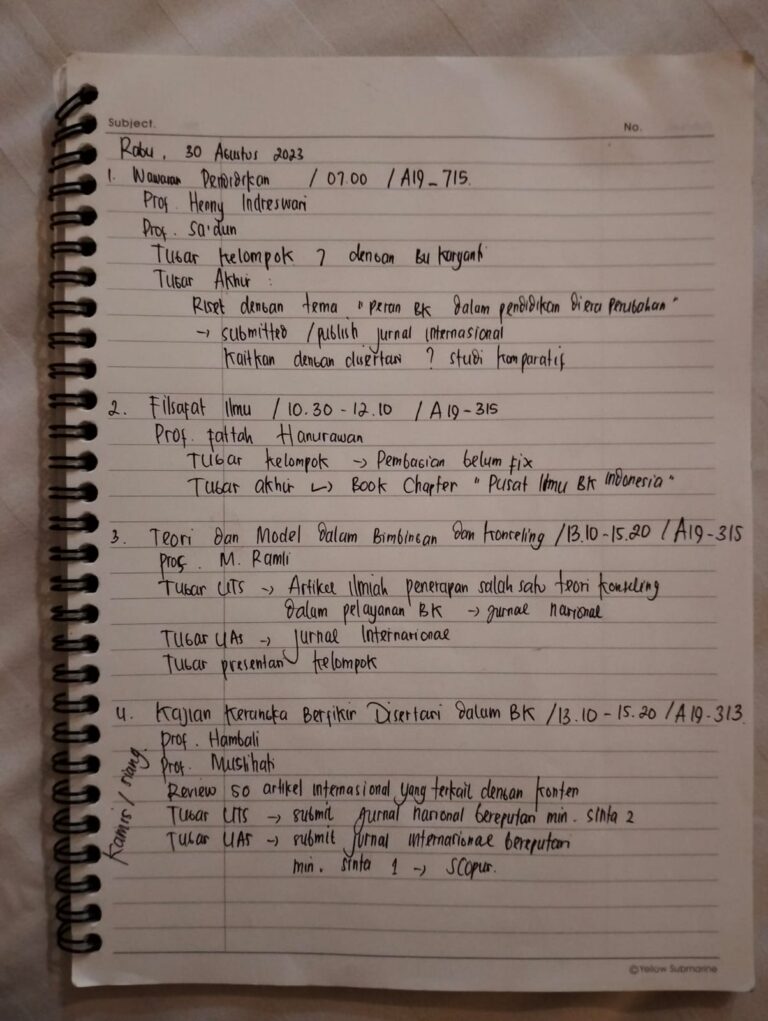 Subject.
No.
Rabu, 30 Agustus 2023
1. Wawasan Pendidikan / 07.00 / A19-715.
Prof. Henny Indreswari
Prof. Sa'dun
Tugas kelompok 7 dengan Bu Karyanti
Tugas Akhir :
Riset dengan tema "Peran BK dalam pendidikan di era perubahan"
→ submitted / publish jurnal internasional
Kaitkan dengan disertasi ? studi komparatif
2. Filsafat Ilmu / 10.30 - 12.10 / A19-315
Prof. Fattah Hanurawan
Tugas kelompok → Pembagian belum fix
Tugas akhir ↳ Book Chapter "Pusat Ilmu BK Indonesia"
3. Teori dan Model dalam Bimbingan dan Konseling / 13.10 - 15.20 / A19-315
Prof. M. Ramli
Tugas UTS → Artikel ilmiah penerapan salah satu teori konseling
dalam pelayanan BK → jurnal nasional
Tugas UAS → Jurnal Internasional
Tugas presentasi kelompok
4. Kajian Kerangka Berfikir Disertasi dalam BK / 13.10 - 15.20 / A19-313
Prof. Hambali
Prof. Muslihati
Kamis / siang
Review 50 artikel internasional yang terkait dengan konten
Tugas UTS → submit jurnal nasional bereputasi min. Sinta 2
Tugas UAS → submit jurnal internasional bereputasi
min. Sinta 1 → Scopus.
©Yellow Submarine